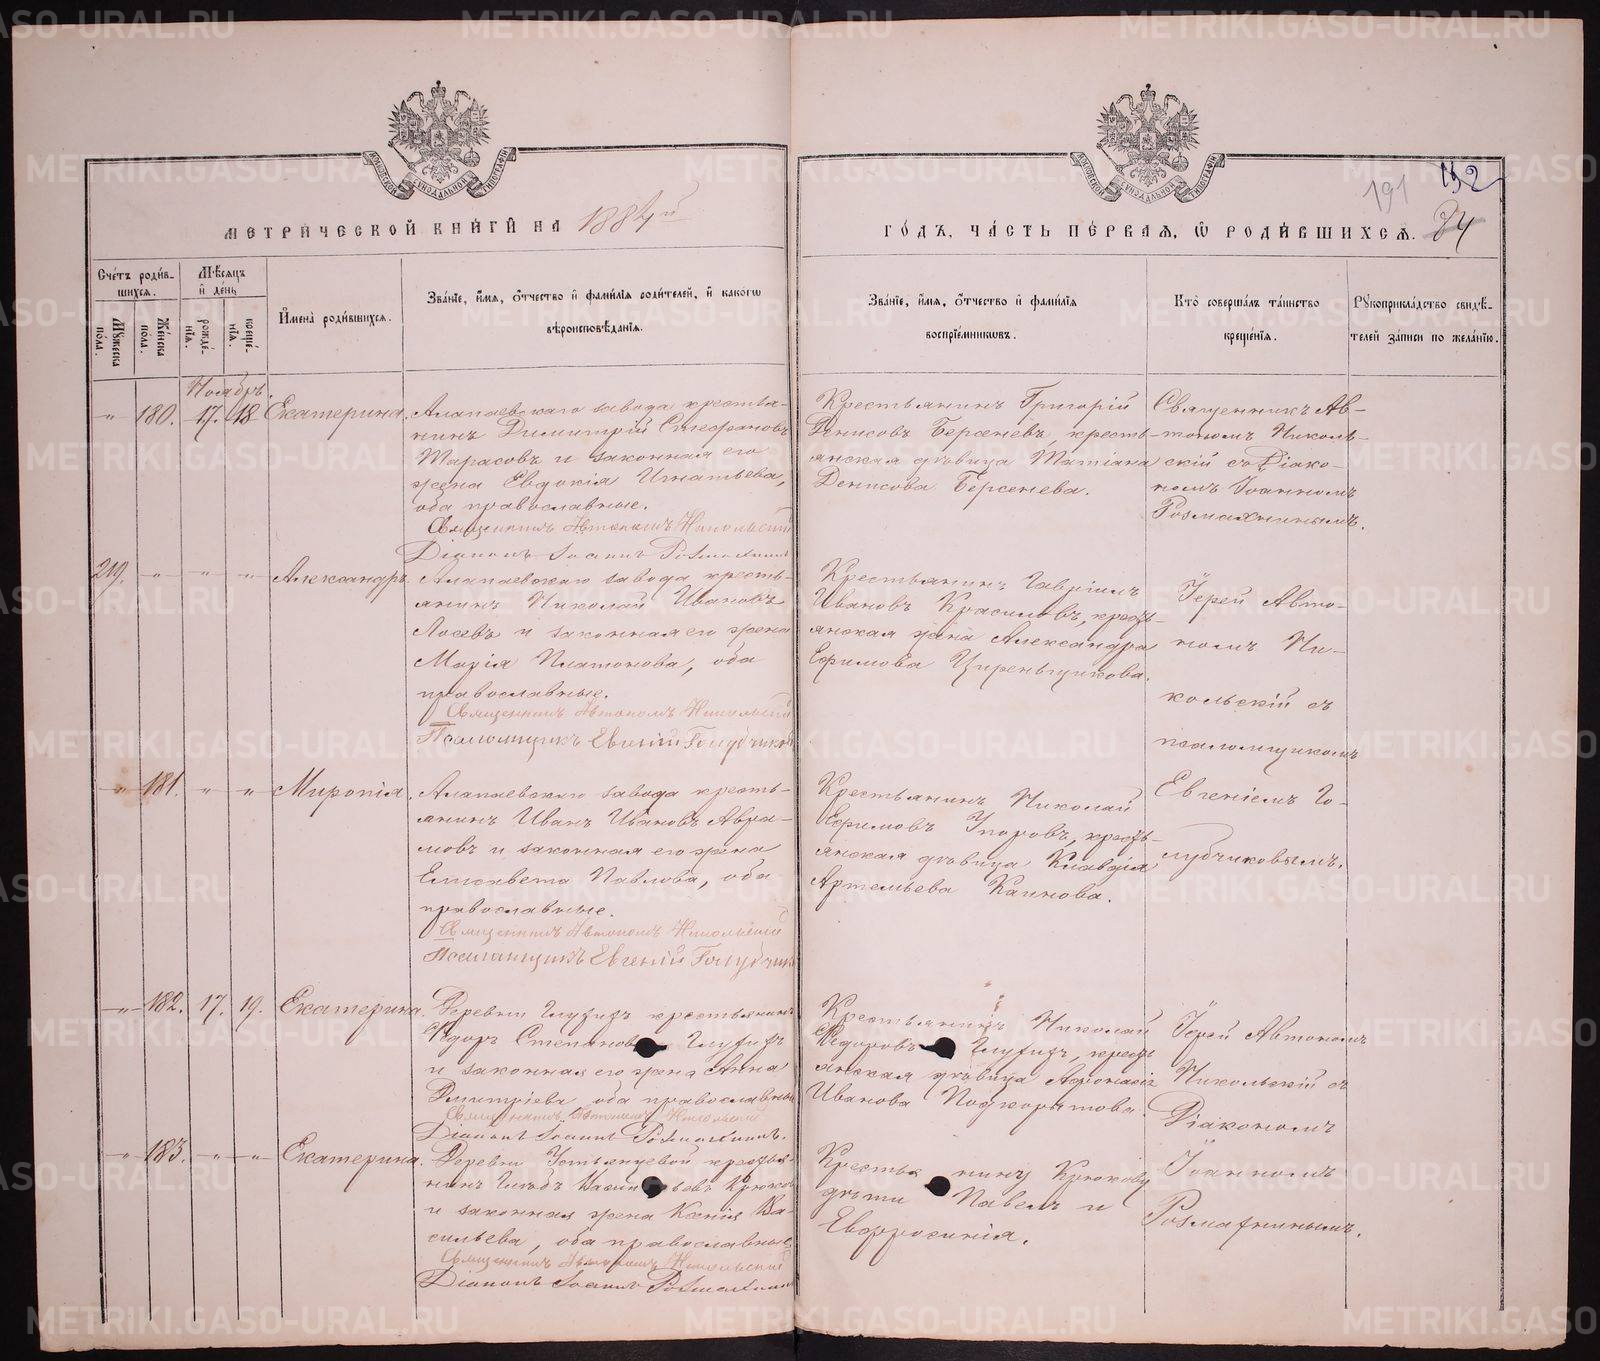 МЕТРИЧЕСКОЙ КНИГИ НА 1884й
ГОДЪ, ЧАСТЬ ПЕРВАЯ, Ѡ РОДИВШИХСЯ.
191
192
84
Счетъ родившихся.
Мужеска пола.
Женска пола.
Мѣсяцъ и день
рожденія.
крещенія.
Имена родившихся.
Званіе, имя, отчество и фамилія родителей, и какогѡ
вѣроисповѣданія.
Званіе, имя, отчество и фамилія
воспріемниковъ.
Кто совершалъ таинство
крещенія.
Рукоприкладство свидѣ-
телей записи по желанію.
Ноябрь.
" 180. 17. 18 Екатерина.
Алапаевскаго завода крестья-
нинъ Димитрій Стефановъ
Тарасовъ и законная его
жена Евдокія Игнатьева,
оба православные.
Священникъ Автономъ Никольскій
Діаконъ Іоаннъ Размахнинъ
Крестьянинъ Григорій
Денисовъ Берсеневъ, кресть-
янская дѣвица Татіана
Денисова Берсенева.
Священникъ Ав-
тономъ Николь-
скій съ Діако-
номъ Іоанномъ
Розмахнинымъ.
219. " " " Александръ.
Алапаевскаго завода кресть-
янинъ Николай Ивановъ
Лосевъ и законная его жена
Марія Платонова, оба
православные.
Священникъ Автономъ Никольскій
Псаломщикъ Евгеній Голубчиковъ
Крестьянинъ Гавріилъ
Ивановъ Красиловъ, кресть-
янская жена Александра
Ефимова Циренщикова.
Іерей Авто-
номъ Ни-
кольскій съ
псаломщикомъ
Евгеніемъ Го-
лубчиковымъ.
" 181. " " Миропія.
Алапаевскаго завода кресть-
янинъ Иванъ Ивановъ Авра-
мовъ и законная его жена
Елисавета Павлова, оба
православные.
Священникъ Автономъ Никольскій
Псаломщикъ Евгеній Голубчиковъ
Крестьянинъ Николай
Ефимовъ Упоровъ, кресть-
янская дѣвица Клавдія
Артемьева Каинова.
" 182. 17. 19. Екатерина.
Деревни Глухихъ крестьянинъ
Ѳедоръ Степановъ Глухихъ
и законная его жена Анна
Дмитріева, оба православные
Священникъ Автономъ Никольскій
Діаконъ Іоаннъ Размахнинъ.
Крестьянинъ Николай
Ѳедоровъ Глухихъ, кресть-
янская дѣвица Аѳонасія
Иванова Подкорытова.
Іерей Автономъ
Никольскій съ
Діакономъ
Іоанномъ
Розмахнинымъ.
" 183. " " Екатерина.
Деревни Устьянцевой крестья-
нинъ Глѣбъ Васильевъ Крюковъ
и законная жена Ксенія Ва-
сильева, оба православные
Священникъ Автономъ Никольскій
Діаконъ Іоаннъ Размахнинъ
Крестьянину Крюкову
дѣти Павелъ и
Евфросинія.
METRIKI.GASO-URAL.RU